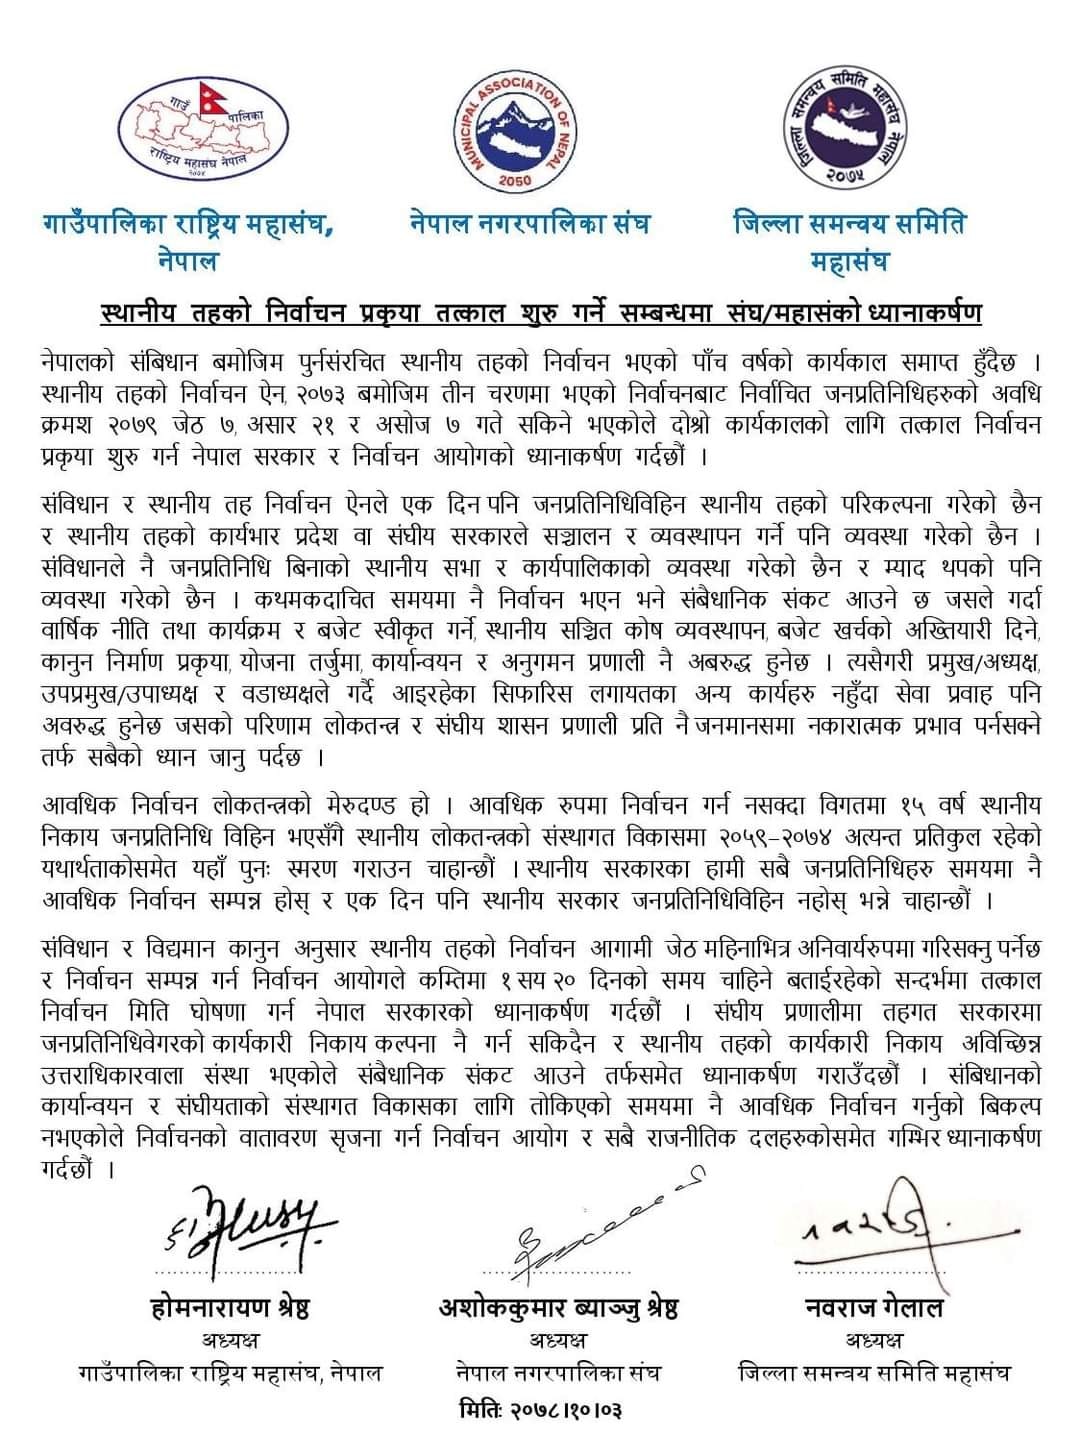 गाउँ
पालिका
राष्ट्रिय महासंघ नेपाल
२०७४
MUNICIPAL ASSOCIATION OF NEPAL
2050
जिल्ला समन्वय समिति महासंघ नेपाल
२०७५
गाउँपालिका राष्ट्रिय महासंघ,
नेपाल
नेपाल नगरपालिका संघ
जिल्ला समन्वय समिति
महासंघ
स्थानीय तहको निर्वाचन प्रकृया तत्काल शुरु गर्ने सम्बन्धमा संघ/महासंको ध्यानाकर्षण
नेपालको संबिधान बमोजिम पुर्नसंरचित स्थानीय तहको निर्वाचन भएको पाँच वर्षको कार्यकाल समाप्त हुँदैछ ।
स्थानीय तहको निर्वाचन ऐन, २०७३ बमोजिम तीन चरणमा भएको निर्वाचनबाट निर्वाचित जनप्रतिनिधिहरुको अवधि
क्रमश २०७९ जेठ ७, असार २१ र असोज ७ गते सकिने भएकोले दोश्रो कार्यकालको लागि तत्काल निर्वाचन
प्रकृया शुरु गर्न नेपाल सरकार र निर्वाचन आयोगको ध्यानाकर्षण गर्दछौं ।
संविधान र स्थानीय तह निर्वाचन ऐनले एक दिन पनि जनप्रतिनिधिविहिन स्थानीय तहको परिकल्पना गरेको छैन
र स्थानीय तहको कार्यभार प्रदेश वा संघीय सरकारले सञ्चालन र व्यवस्थापन गर्ने पनि व्यवस्था गरेको छैन ।
संविधानले नै जनप्रतिनिधि बिनाको स्थानीय सभा र कार्यपालिकाको व्यवस्था गरेको छैन र म्याद थपको पनि
व्यवस्था गरेको छैन । कथमकदाचित समयमा नै निर्वाचन भएन भने संबैधानिक संकट आउने छ जसले गर्दा
वार्षिक नीति तथा कार्यक्रम र बजेट स्वीकृत गर्ने, स्थानीय सञ्चित कोष व्यवस्थापन, बजेट खर्चको अख्तियारी दिने,
कानुन निर्माण प्रकृया, योजना तर्जुमा, कार्यान्वयन र अनुगमन प्रणाली नै अबरुद्ध हुनेछ । त्यसैगरी प्रमुख/अध्यक्ष,
उपप्रमुख/उपाध्यक्ष र वडाध्यक्षले गर्दै आइरहेका सिफारिस लगायतका अन्य कार्यहरु नहुँदा सेवा प्रवाह पनि
अवरुद्ध हुनेछ जसको परिणाम लोकतन्त्र र संघीय शासन प्रणाली प्रति नै जनमानसमा नकारात्मक प्रभाव पर्नसक्ने
तर्फ सबैको ध्यान जानु पर्दछ ।
आवधिक निर्वाचन लोकतन्त्रको मेरुदण्ड हो । आवधिक रुपमा निर्वाचन गर्न नसक्दा विगतमा १५ वर्ष स्थानीय
निकाय जनप्रतिनिधि विहिन भएसँगै स्थानीय लोकतन्त्रको संस्थागत विकासमा २०५९-२०७४ अत्यन्त प्रतिकुल रहेको
यथार्थताकोसमेत यहाँ पुनः स्मरण गराउन चाहान्छौं । स्थानीय सरकारका हामी सबै जनप्रतिनिधिहरु समयमा नै
आवधिक निर्वाचन सम्पन्न होस् र एक दिन पनि स्थानीय सरकार जनप्रतिनिधिविहिन नहोस् भन्ने चाहान्छौं ।
संविधान र विद्यमान कानुन अनुसार स्थानीय तहको निर्वाचन आगामी जेठ महिनाभित्र अनिवार्यरुपमा गरिसक्नु पर्नेछ
र निर्वाचन सम्पन्न गर्न निर्वाचन आयोगले कम्तिमा १ सय २० दिनको समय चाहिने बताईरहेको सन्दर्भमा तत्काल
निर्वाचन मिति घोषणा गर्न नेपाल सरकारको ध्यानाकर्षण गर्दछौं । संघीय प्रणालीमा तहगत सरकारमा
जनप्रतिनिधिवेगरको कार्यकारी निकाय कल्पना नै गर्न सकिदैन र स्थानीय तहको कार्यकारी निकाय अविच्छिन्न
उत्तराधिकारवाला संस्था भएकोले संबैधानिक संकट आउने तर्फसमेत ध्यानाकर्षण गराउँदछौं । संबिधानको
कार्यान्वयन र संघीयताको संस्थागत विकासका लागि तोकिएको समयमा नै आवधिक निर्वाचन गर्नुको बिकल्प
नभएकोले निर्वाचनको वातावरण सृजना गर्न निर्वाचन आयोग र सबै राजनीतिक दलहरुकोसमेत गम्भिर ध्यानाकर्षण
गर्दछौं ।
होमनारायण श्रेष्ठ
अध्यक्ष
गाउँपालिका राष्ट्रिय महासंघ, नेपाल
अशोककुमार ब्याञ्जु श्रेष्ठ
अध्यक्ष
नेपाल नगरपालिका संघ
नवराज गेलाल
अध्यक्ष
जिल्ला समन्वय समिति महासंघ
मितिः २०७८।१०।०३